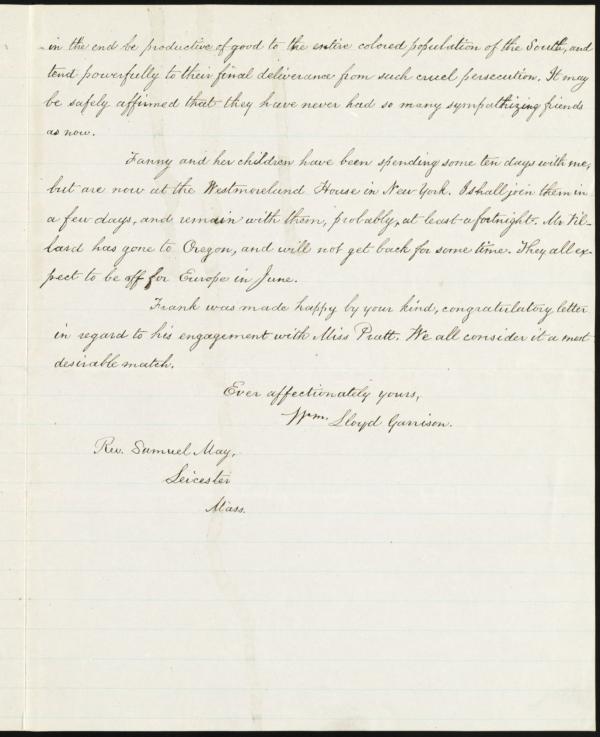 in the end be productive of good to the entire colored population of the South, and
tend powerfully to their final deliverance from such cruel persecution. It may
be safely affirmed that they have never had so many sympathizing friends
as now.
Fanny and her children have been spending some ten days with me,
but are now at the Westmoreland House in New York. I shall join them in
a few days, and remain with them, probably, at least a fortnight. Mr. Vil-
lard has gone to Oregon, and will not get back for some time. They all ex-
pect to be off for Europe in June.
Frank was made happy by your kind, congratulatory letter
in regard to his engagement with Miss Pratt. We all consider it a most
desirable match.
Ever affectionately yours,
Wm. Lloyd Garrison.
Rev. Samuel May,
Leicester
Mass.